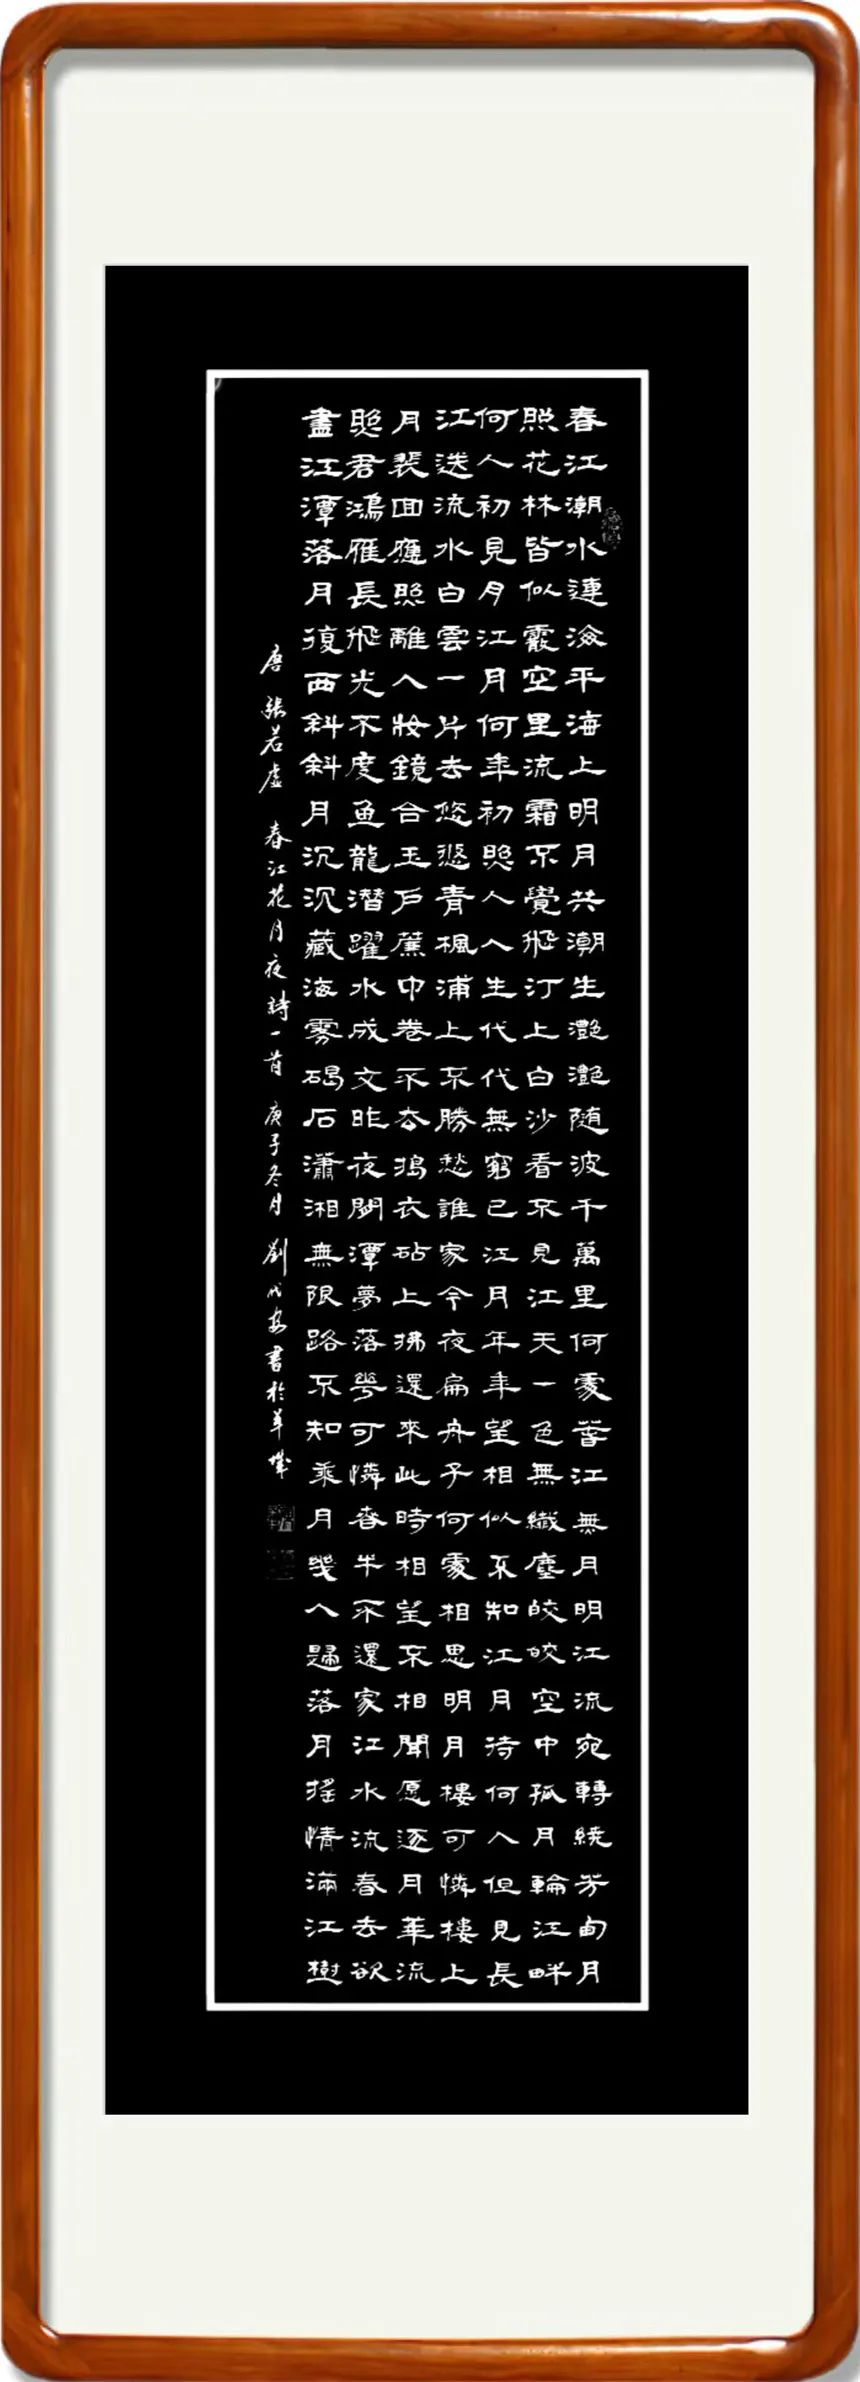 春江潮水連海平海上明月共潮生灧灧随波千萬里何處春江無月明江流宛轉繞芳甸月
照花林皆似霰空里流霜不覺飛汀上白沙看不見江天一色無纖塵皎皎空中孤月輪江畔
何人初見月江月何年初照人人生代代無窮已江月年年望相似不知江月待何人但見長
江送流水白雲一片去悠悠青楓浦上不勝愁誰家今夜扁舟子何處相思明月樓可憐樓上
月裴回應照離人妝鏡合玉戶簾中卷不去搗衣砧上拂還來此時相望不相聞愿逐月華流
照君鴻雁長飛光不度鱼龍潜躍水成文昨夜閒潭夢落花可憐春半不還家江水流春去欲
盡江潭落月復西斜斜月沉沉藏海雾碣石瀟湘無限路不知乘月幾人歸落月搖情滿江樹
唐 張若虛 春江花月夜詩一首 庚子冬月 劉代安書於羊城